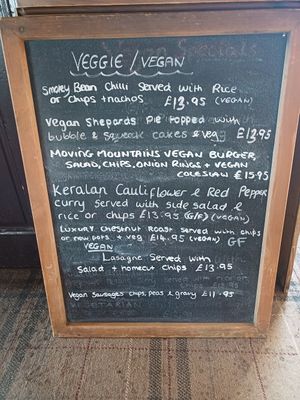 VEGGIE / VEGAN
Smokey Bean Chilli Served with Rice
or chips + nachos £13.95 (VEGAN)
Vegan Shepards Pie topped with
bubble & Squeak cakes & veg £13.95
MOVING MOUNTAINS VEGAN BURGER
SALAD, CHIPS, ONION RINGS + VEGAN
COLESLAW £15.95
Keralan Cauliflower & Red Pepper
curry served with side salad &
rice or chips £13.95 (G/F) (VEGAN)
LUXURY Chestnut Roast served with chips
or new pots + veg £14.95 (VEGAN) GF
VEGAN
Lasagne Served with
Salad + homecut chips £13.95
Vegan Sausages chips, peas & gravy £11.95